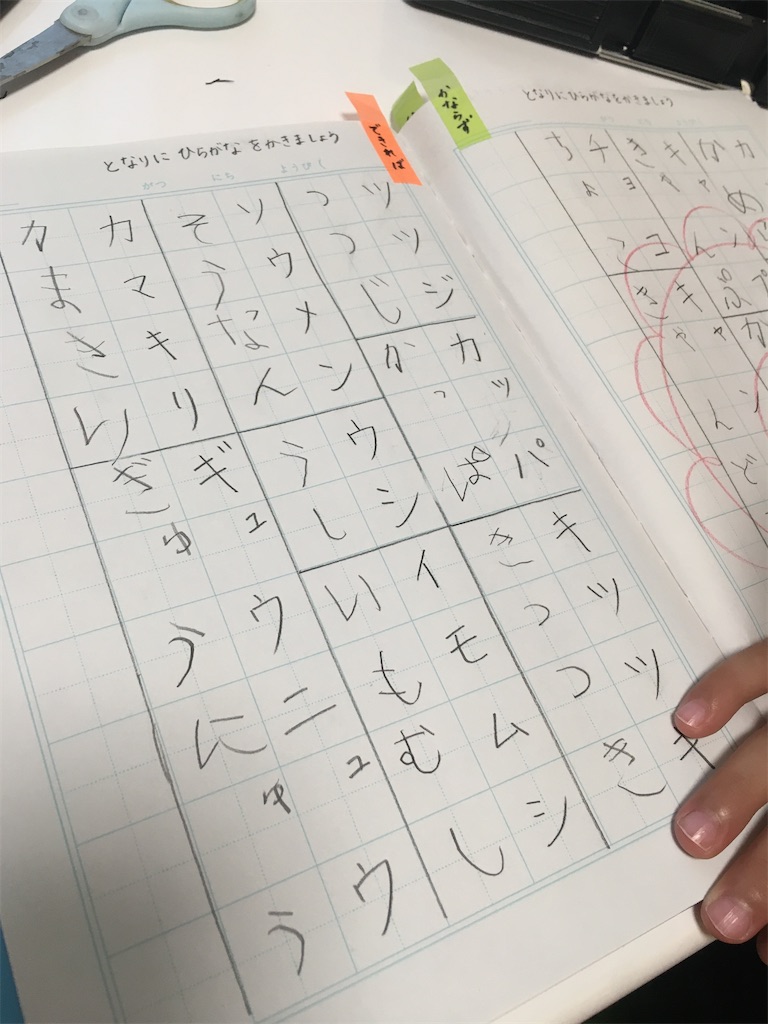 となりに ひらがな をかきましょう
がつ にち ようび
できれば
かならず
となりにひらがなをかきましょう
チョコキャン
ちょこきゃんど
キャンプ
きゃんぷ
ツツジカッパキツツキ
つつじかっぱきつつき
ソウメンウシイモムシ
そうなんうしいもむし
カマキリギュウニュウ
カまきりぎゅうにゅう